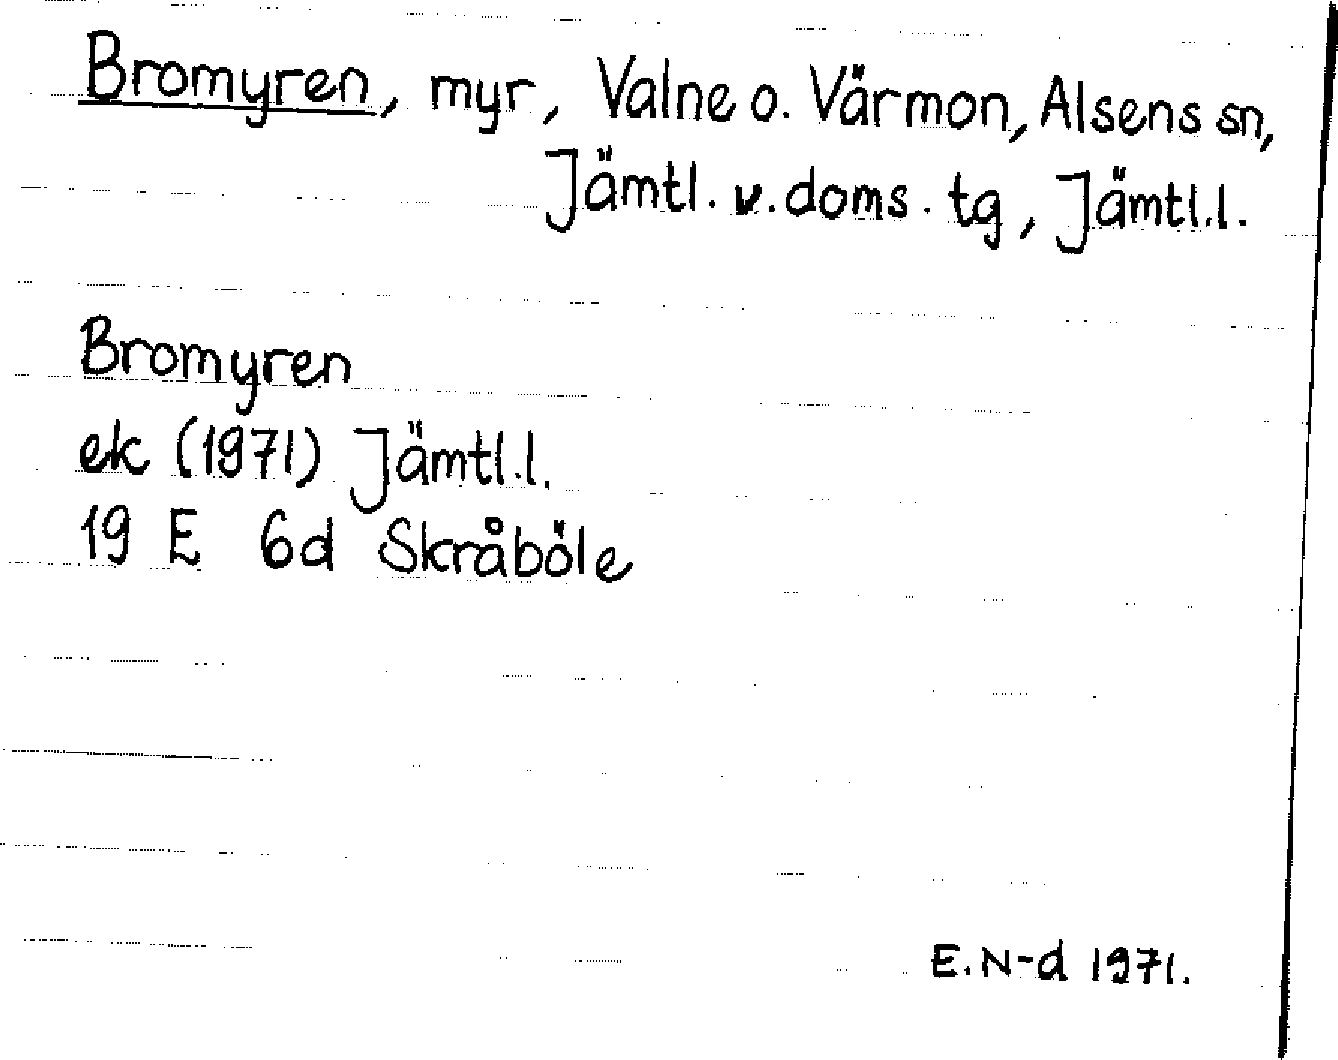 Bromyren, myr, Valne o. Värmon, Alsens sn,
Jämtl. v. doms. tg, Jämtl.l.
Bromyren
ek (1971) Jämtl.l.
19 E 6d Skråböle
E.N-d 1971.